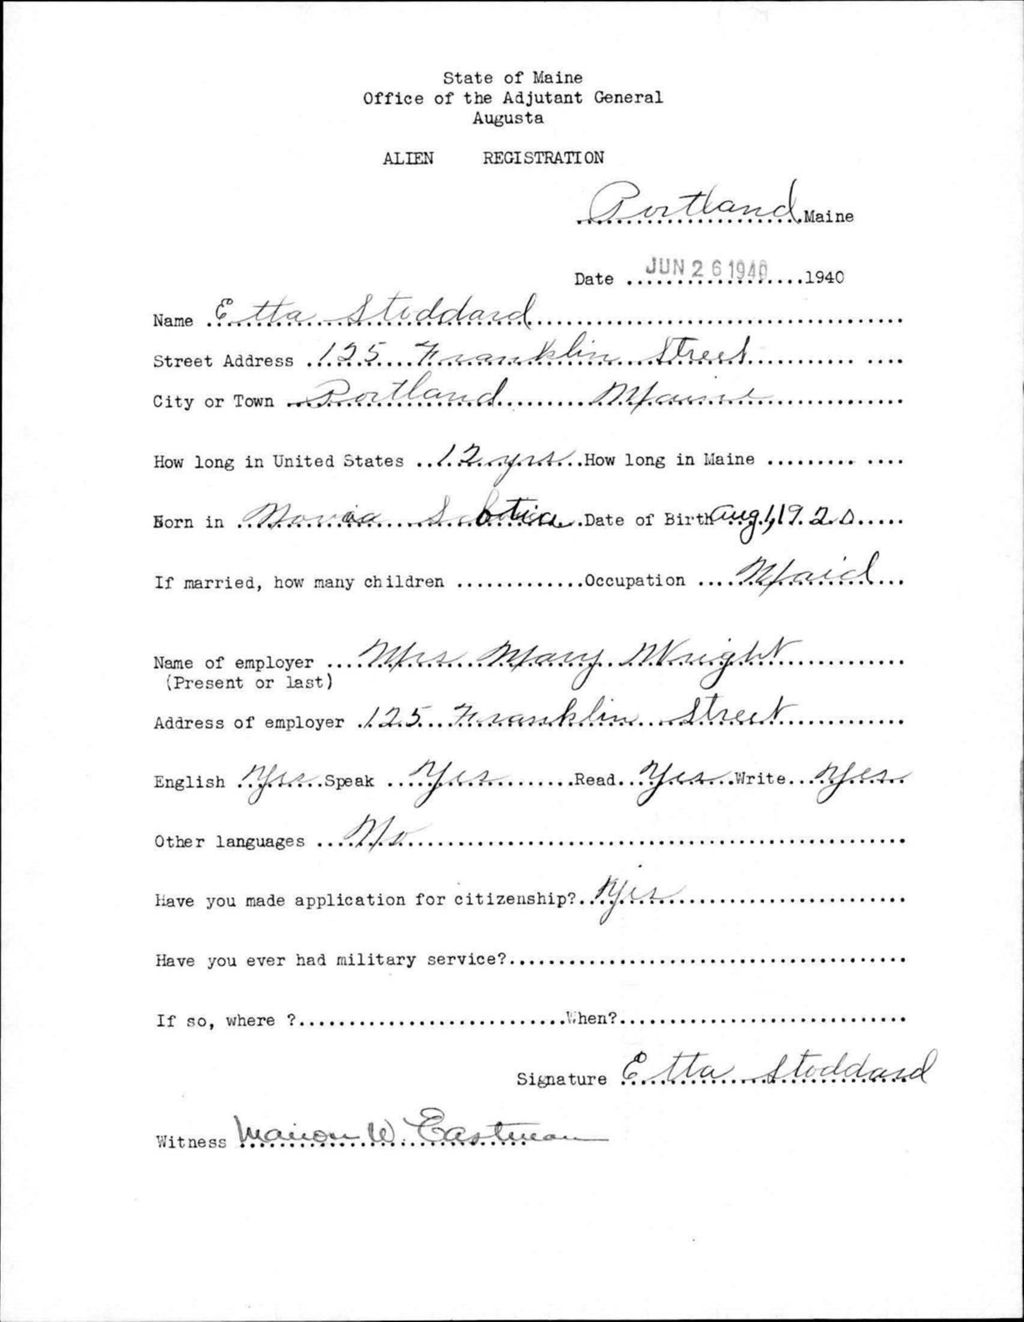 State of Maine
Office of the Adjutant General
Augusta
ALIEN REGISTRATION
Portland Maine
Date JUN 26 1940 1940
Name Etta Stoddard
Street Address 125 Franklin Street
City or Town Portland Maine
How long in United States 12 yrs How long in Maine
Born in Novia Scotia Date of Birth Aug 1, 1920
If married, how many children Occupation Maid
Name of employer Mrs Mary Wright
(Present or last)
Address of employer 125 Franklin Street
English Yes Speak Yes Read Yes Write Yes
Other languages No
Have you made application for citizenship? Yes
Have you ever had military service?
If so, where ? When?
Signature Etta Stoddard
Witness Marion W. Eastman